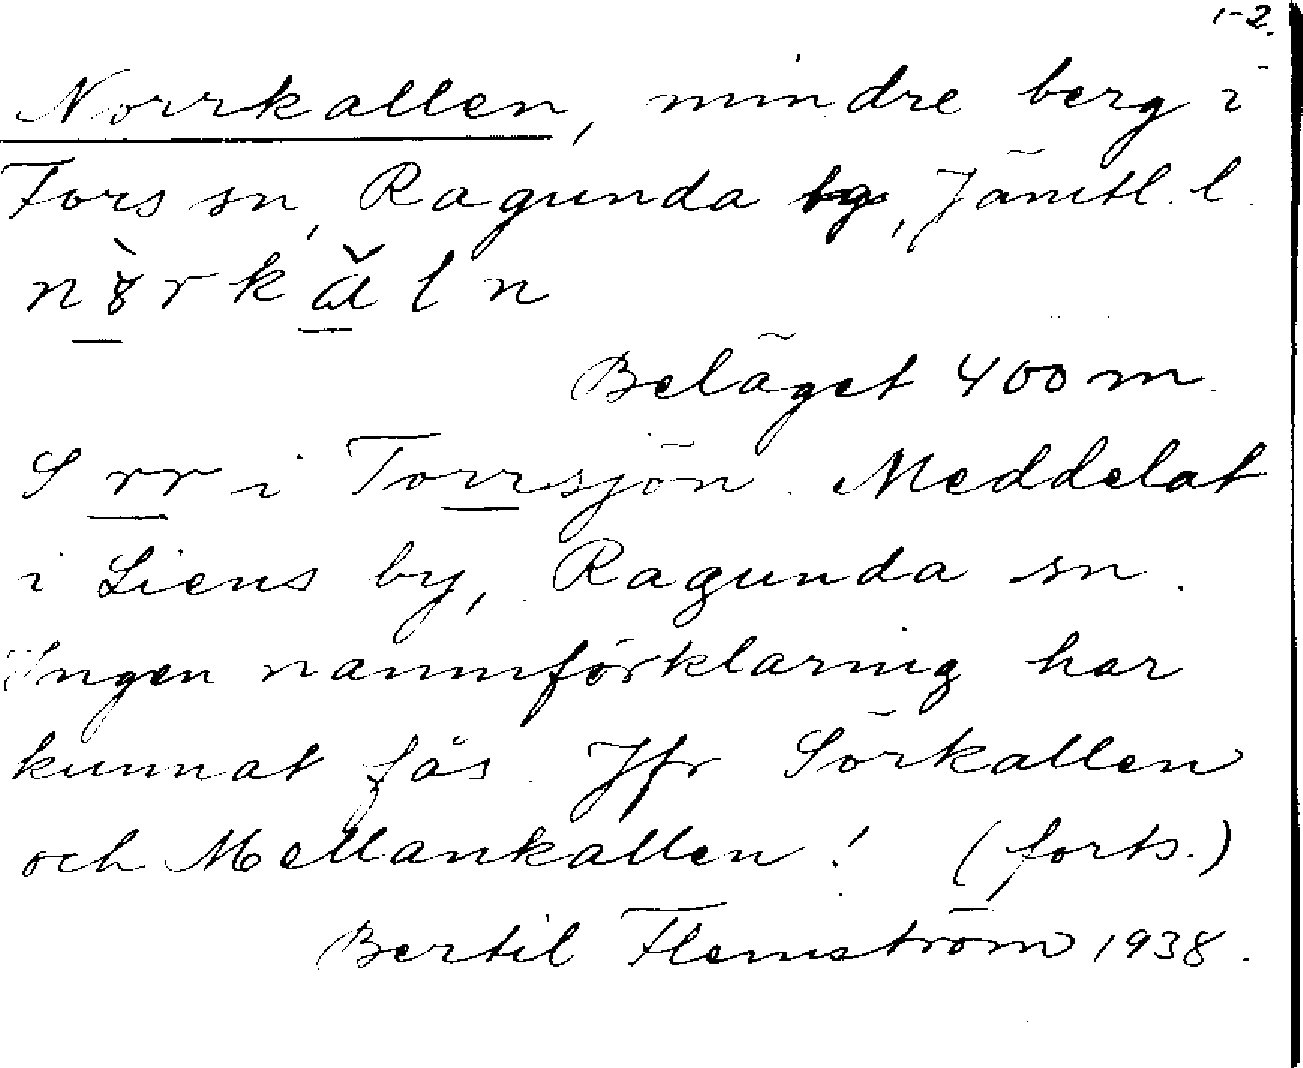 1-2.
Norrkallen, mindre berg i
Fors sn, Ragunda tg, Jämtl. l.
Beläget 400 m
S rr i Torrsjön. Meddelat
i Liens by, Ragunda sn.
Ingen namnförklaring har
kunnat fås. Jfr Sörkallen
och Mellankallen! (forts.)
Bertil Flemström 1938.